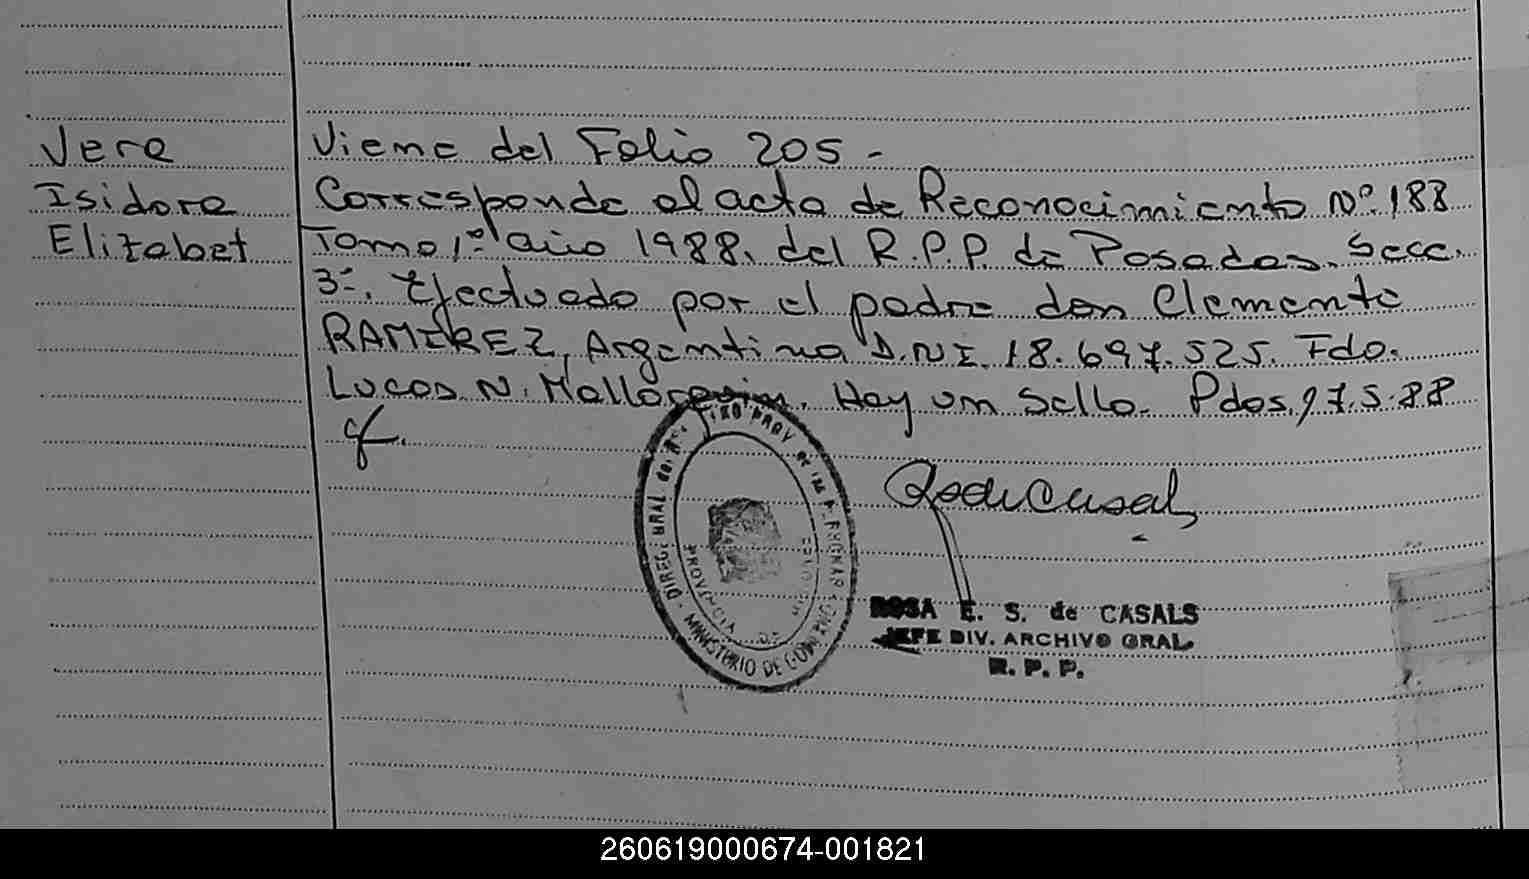 Vera
Isidora
Elizabet
Viene del Folio 205 -
Corresponde al acta de Reconocimiento Nº 188
Tomo 1º año 1988. del R.P.P. de Posadas. Secc.
3ª. Efectuado por el padre don Clemente
RAMIREZ, Argentino D.N.I. 18.697.525. Fdo.
Lucas N. Hay un Sello. Pdas, 17.5.88
DIREC. GRAL del REGISTRO PROV de las P.
MINISTERIO DE GOBIERNO
PROVINCIA DE MISIONES
ROSA E. S. de CASALS
JEFE DIV. ARCHIVO GRAL.
R. P. P.
260619000674-001821